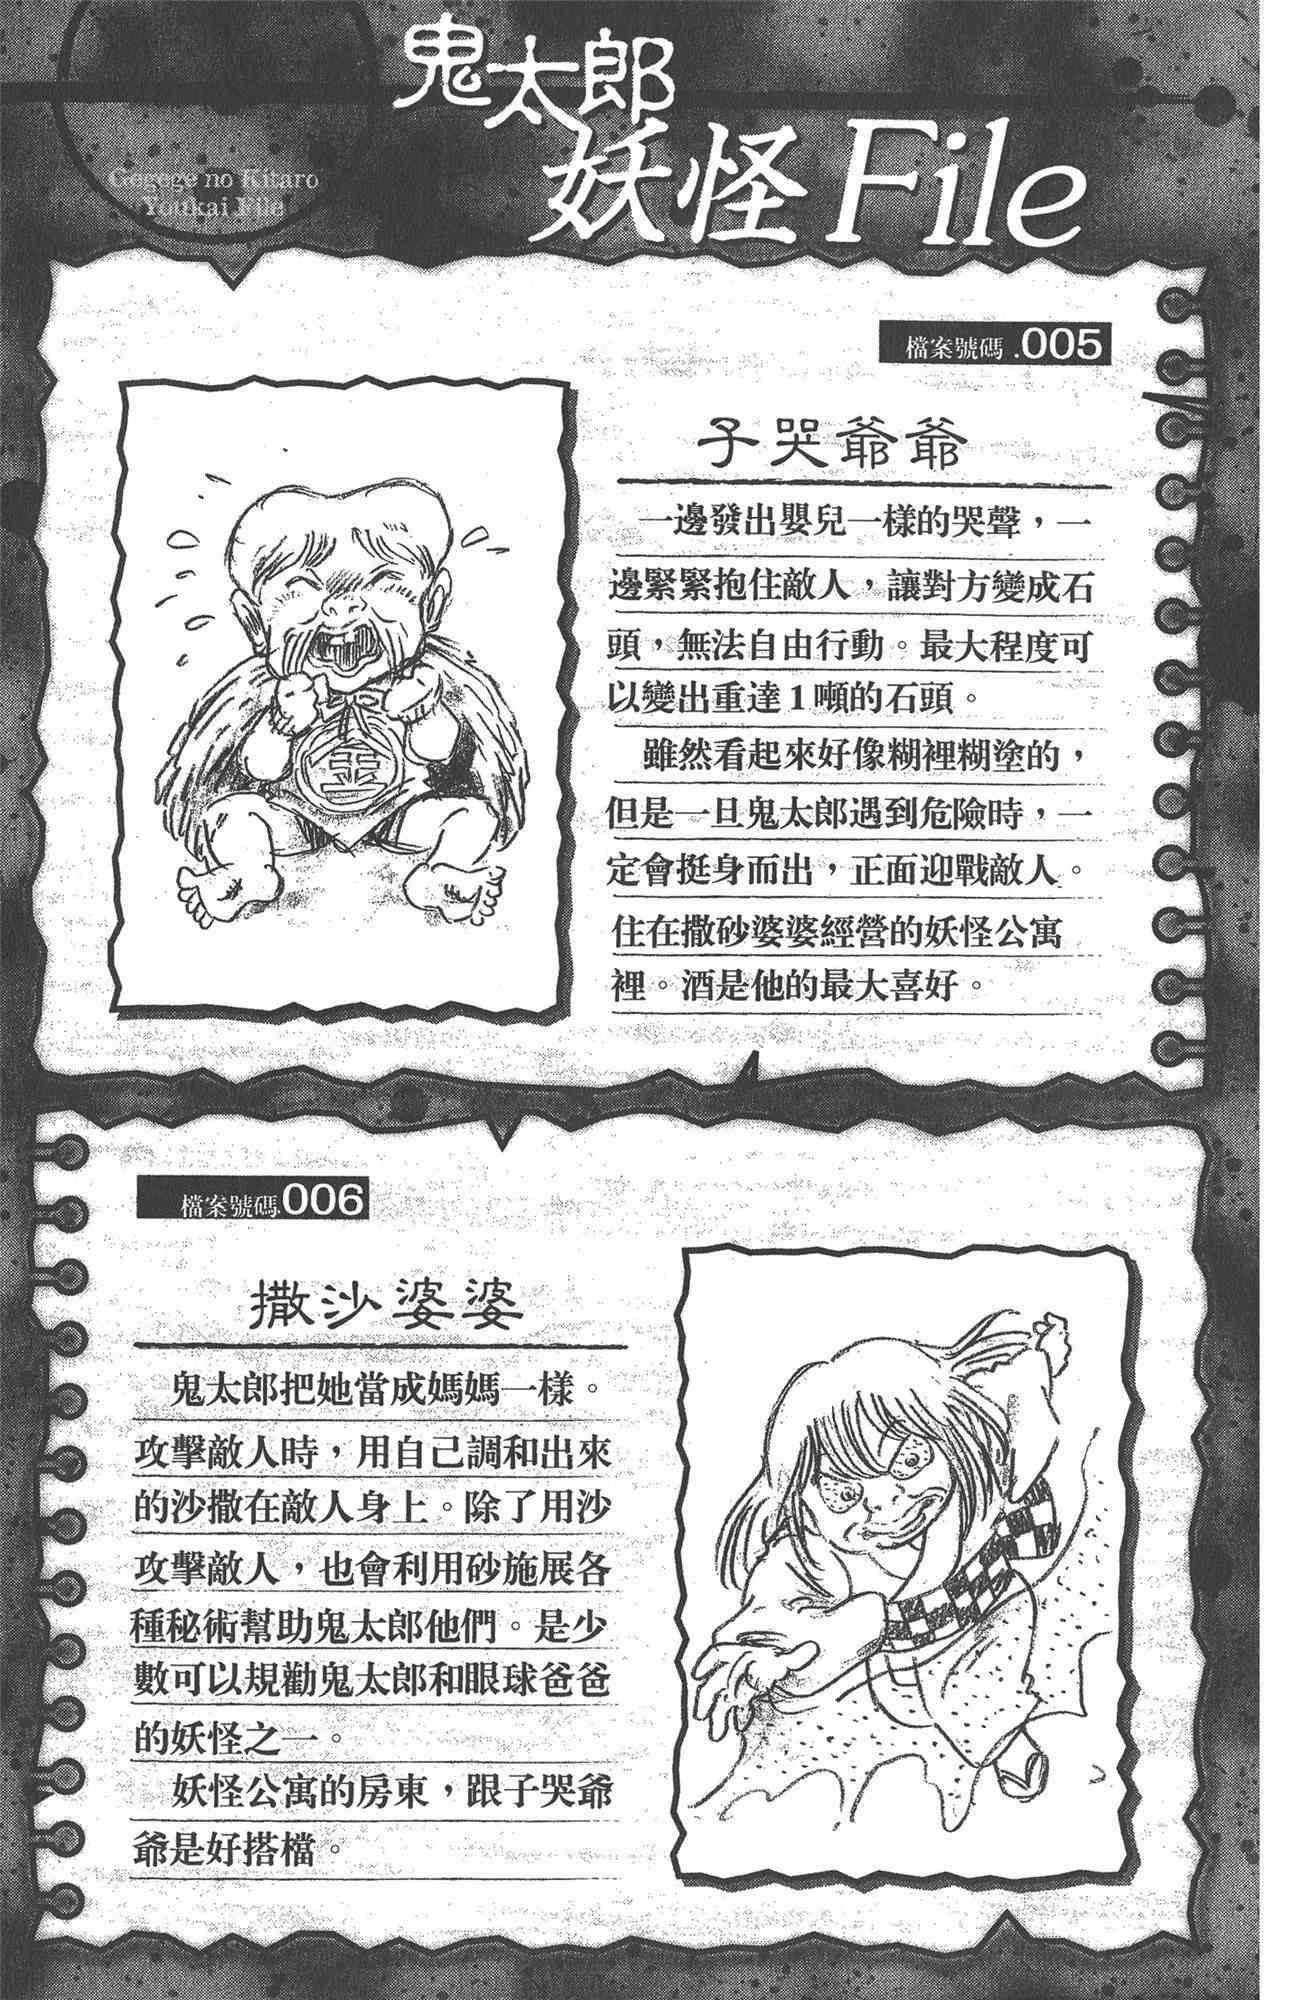 鬼太郎
妖怪File
Gegege no Kitaro
Youkai File
檔案號碼.005
子哭爺爺
一邊發出嬰兒一樣的哭聲，一
邊緊緊抱住敵人，讓對方變成石
頭，無法自由行動。最大程度可
以變出重達1噸的石頭。
雖然看起來好像糊裡糊塗的，
但是一旦鬼太郎遇到危險時，一
定會挺身而出，正面迎戰敵人。
住在撒砂婆婆經營的妖怪公寓
裡。酒是他的最大喜好。
金
檔案號碼.006
撒沙婆婆
鬼太郎把她當成媽媽一樣。
攻擊敵人時，用自己調和出來
的沙撒在敵人身上。除了用沙
攻擊敵人，也會利用砂施展各
種秘術幫助鬼太郎他們。是少
數可以規勸鬼太郎和眼球爸爸
的妖怪之一。
妖怪公寓的房東，跟子哭爺
爺是好搭檔。